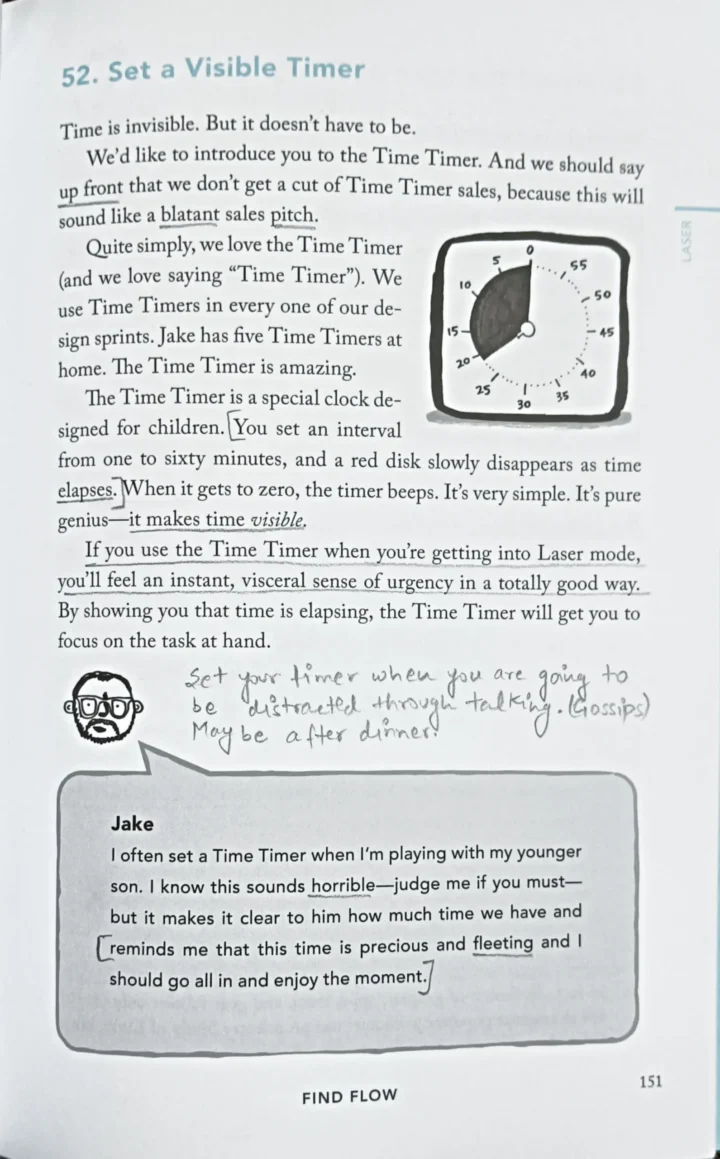 52. Set a Visible Timer
Time is invisible. But it doesn't have to be.
We'd like to introduce you to the Time Timer. And we should say
up front that we don't get a cut of Time Timer sales, because this will
sound like a blatant sales pitch.
Quite simply, we love the Time Timer
(and we love saying "Time Timer"). We
use Time Timers in every one of our de-
sign sprints. Jake has five Time Timers at
home. The Time Timer is amazing.
The Time Timer is a special clock de-
signed for children. [You set an interval
from one to sixty minutes, and a red disk slowly disappears as time
elapses.] When it gets to zero, the timer beeps. It's very simple. It's pure
genius—it makes time visible.
If you use the Time Timer when you're getting into Laser mode,
you'll feel an instant, visceral sense of urgency in a totally good way.
By showing you that time is elapsing, the Time Timer will get you to
focus on the task at hand.
0
5
10
15
20
25
30
35
40
45
50
55
LASER
Set your timer when you are going to
be distracted through talking. (Gossips)
May be after dinner!
Jake
I often set a Time Timer when I'm playing with my younger
son. I know this sounds horrible—judge me if you must—
but it makes it clear to him how much time we have and
[reminds me that this time is precious and fleeting and I
should go all in and enjoy the moment.]
151
FIND FLOW